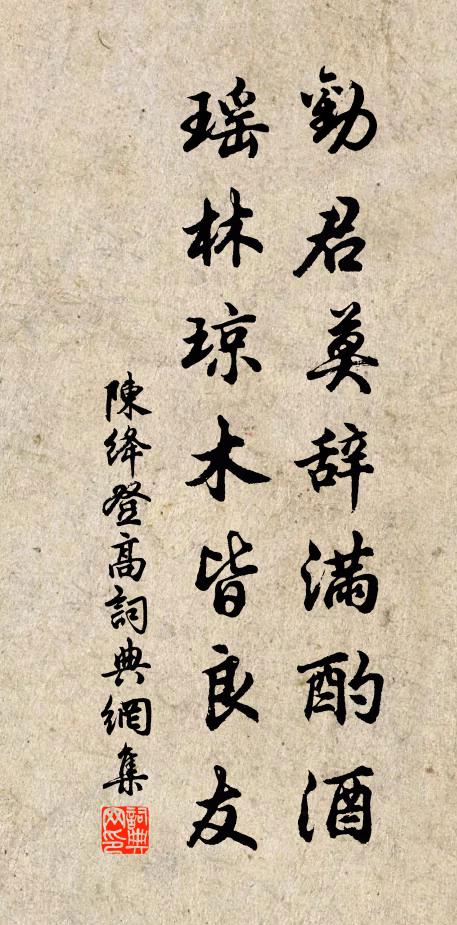 勸君莫辞滿酌酒
瑶林琼木皆良友
陳絳登高詞典網集
詞典網印